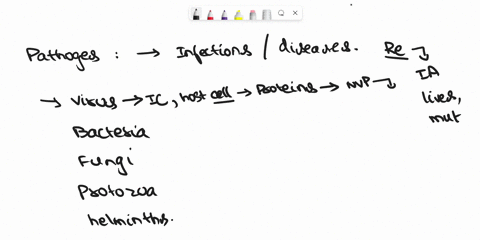 Pathoges : → Infections / diseases. Re
IA
→ Virus → IC, host cell → Proteins → NVP
lives,
mut
Bacteria
Fungi
Protozoa
helminths.